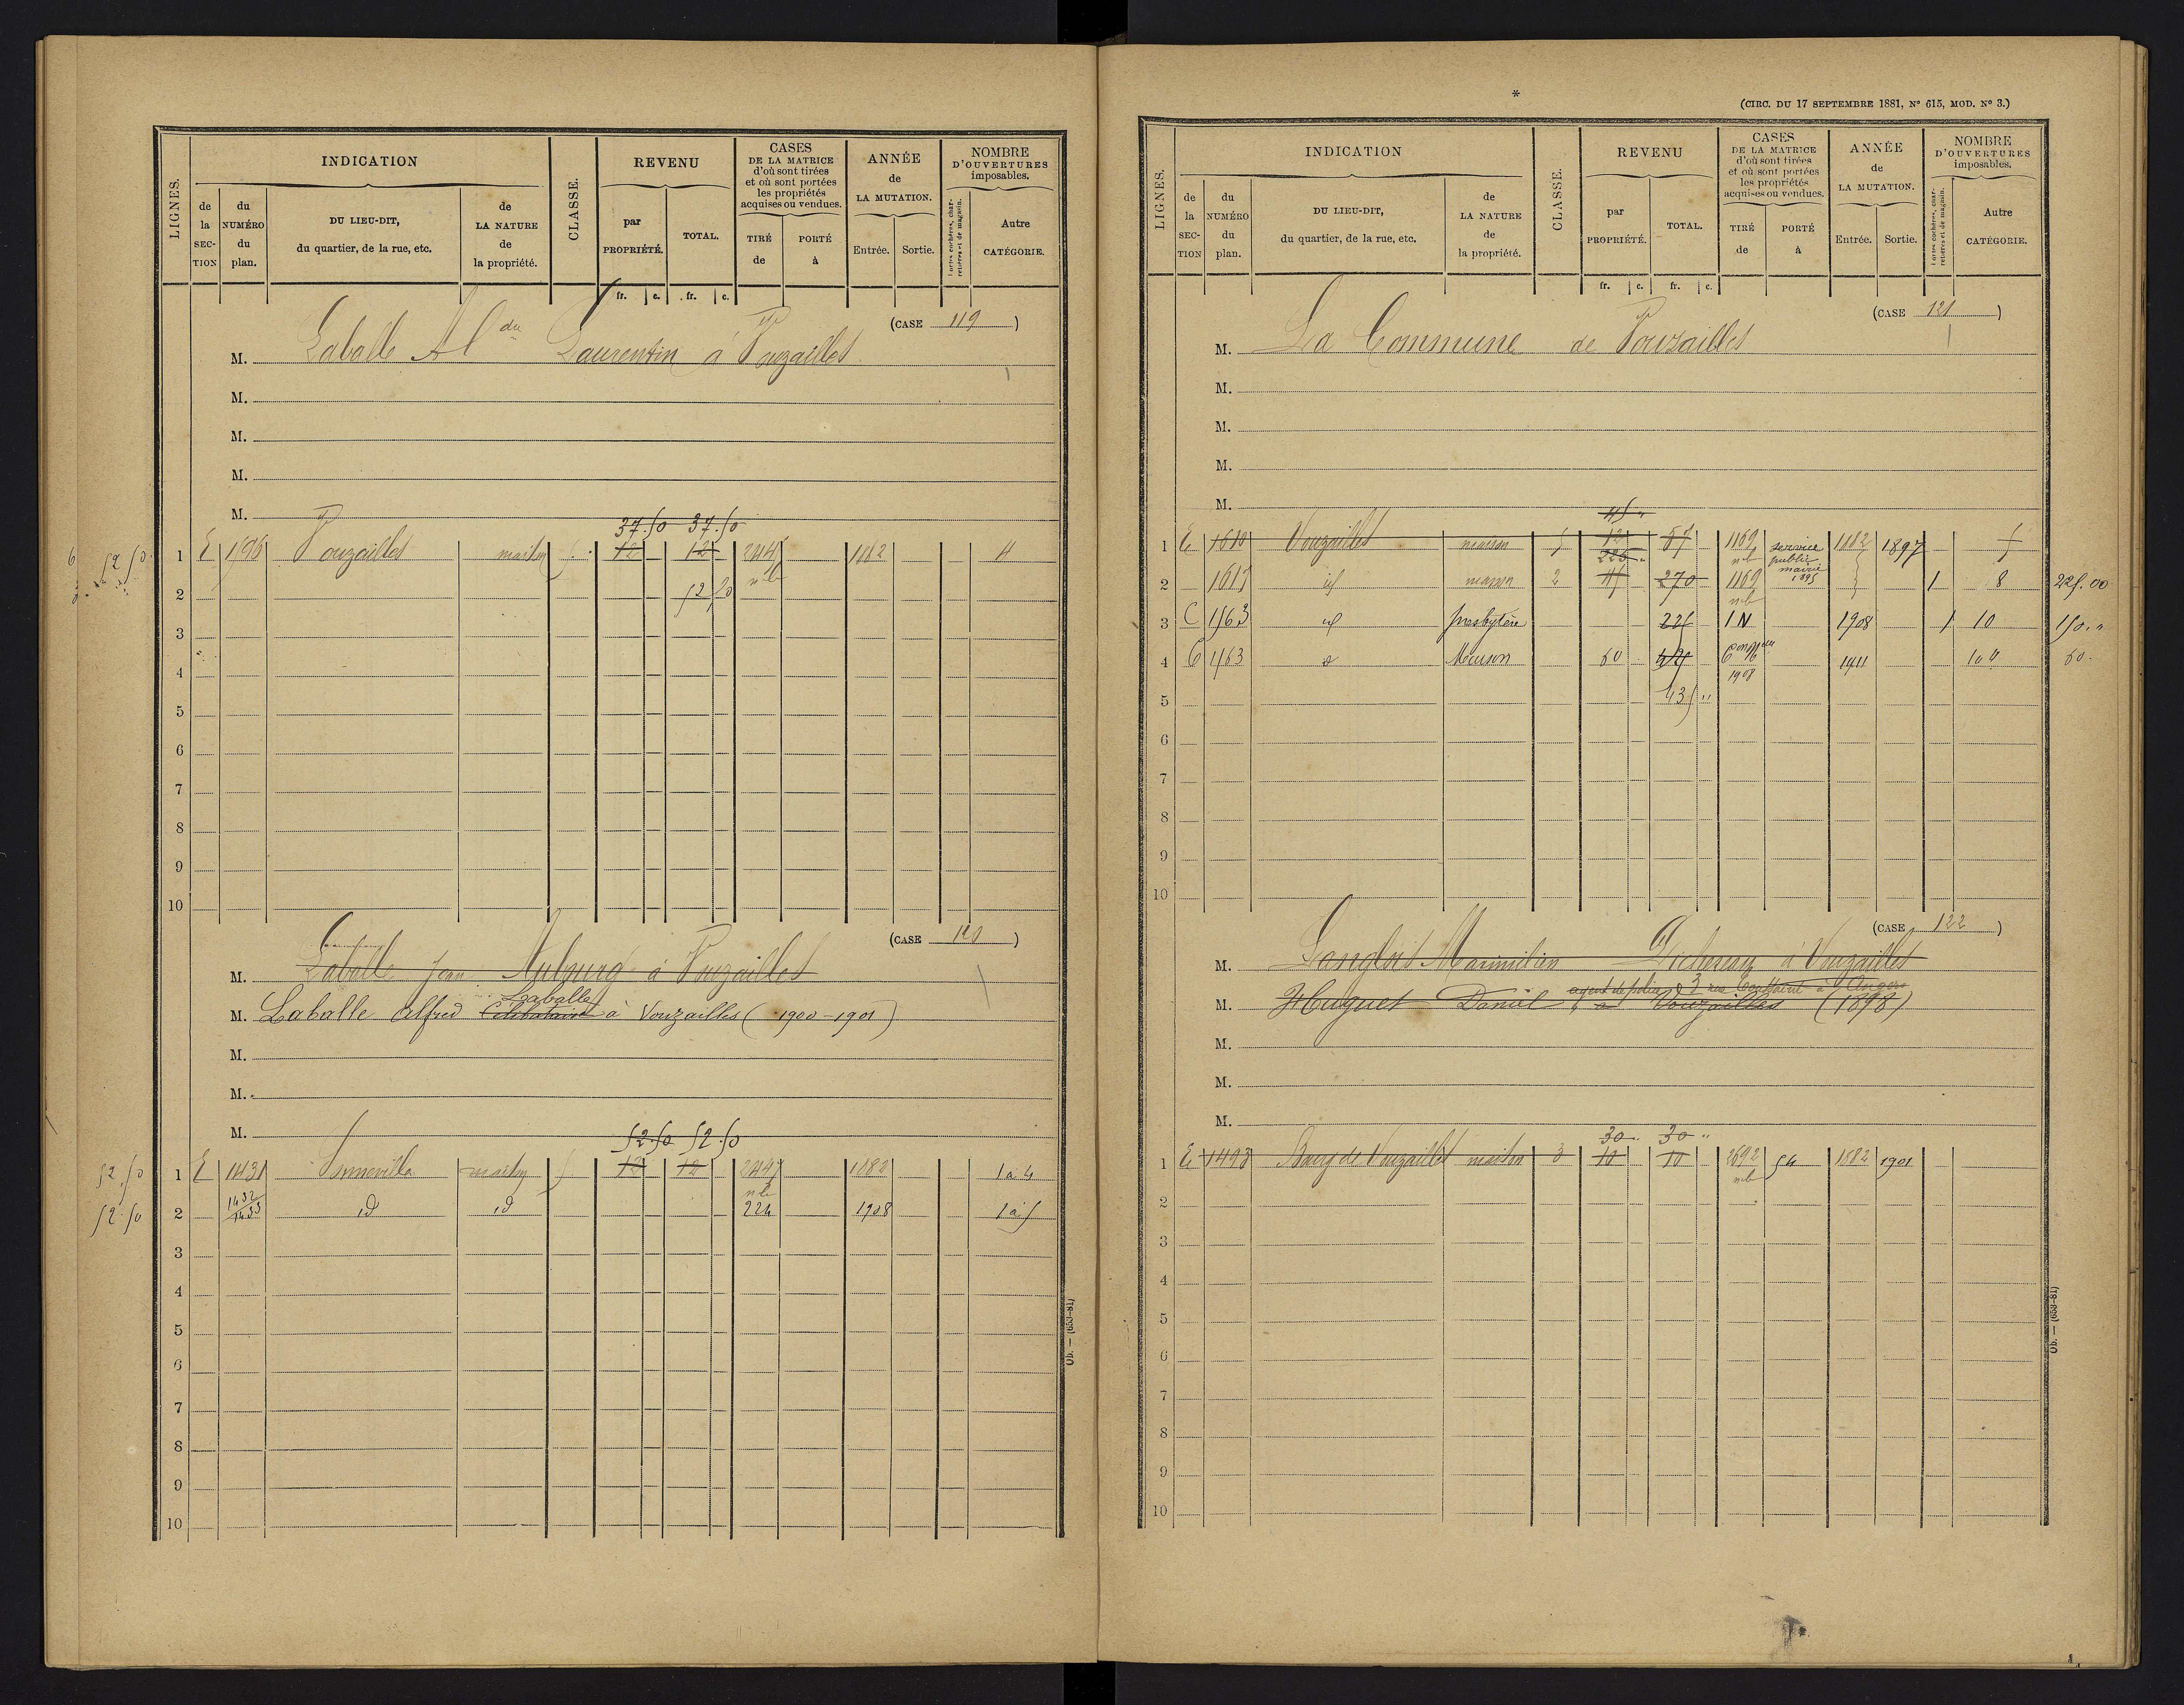 LIGNES.
INDICATION
de la SEC-TION
du NUMÉRO du plan.
DU LIEU-DIT, du quartier, de la rue, etc.
de LA NATURE de la propriété.
CLASSE.
REVENU
par PROPRIÉTÉ.
TOTAL.
CASES DE LA MATRICE d'où sont tirées et où sont portées les propriétés acquises ou vendues.
TIRÉ de
PORTÉ à
ANNÉE de LA MUTATION.
Entrée.
Sortie.
NOMBRE D'OUVERTURES imposables.
Portes cochères, charretières et de magasin.
Autre CATÉGORIE.
fr. c. fr. c.
(CASE 119)
M. Laballe Laurentin à Vouzailles
M.
M.
M.
M.
37.50 37.50
1 E 1596 Vouzailles maison 5 12 12 2445 1882 4
52.50
nb
2 52 50
3
4
5
6
7
8
9
10
(CASE 120)
M. Laballe Jean Auburg à Vouzailles
Laballe
M. Laballe Alfred Célibataire à Vouzailles (1900-1901)
M.
M.
M.
52.50 52.50
52.50 1 E 1431 maison 5 12 12 2447 1882 1 à 4
nb
52.50 2 1432 1433 id id 224 1908 1 à 5
3
4
5
6
7
8
9
10
Ob. — (653-81)
*
(CIRC. DU 17 SEPTEMBRE 1881, No 615, MOD. No 3.)
LIGNES.
INDICATION
de la SEC-TION
du NUMÉRO du plan.
DU LIEU-DIT, du quartier, de la rue, etc.
de LA NATURE de la propriété.
CLASSE.
REVENU
par PROPRIÉTÉ.
TOTAL.
CASES DE LA MATRICE d'où sont tirées et où sont portées les propriétés acquises ou vendues.
TIRÉ de
PORTÉ à
ANNÉE de LA MUTATION.
Entrée.
Sortie.
NOMBRE D'OUVERTURES imposables.
Portes cochères, charretières et de magasin.
Autre CATÉGORIE.
fr. c. fr. c.
(CASE 121)
M. La Commune de Vouzailles
M.
M.
M.
M.
45 "
1 E 1610 Vouzailles maison 5 12 57 1169 service public mairie 1895 1882 1897
225 nb
2 1617 id maison 2 45 270 1169 1 8 225.00
nb
3 C 1563 id presbytère 225 1 N 1908 1 10 150. "
4 C 463 Maison 60 1908 1911 60.
5 435 "
6
7
8
9
10
(CASE 122)
M. Langlois Maximilien Dichereau à Vouzailles
agent de police, 3 rue à Angers
M. Huguet Daniel à Vouzailles (1898)
M.
M.
M.
30 " 30 "
1 E 1493 Bourg de Vouzailles maison 3 10 10 2692 54 1882 1901
nb
2
3
4
5
6
7
8
9
10
Ob. — (653-81)